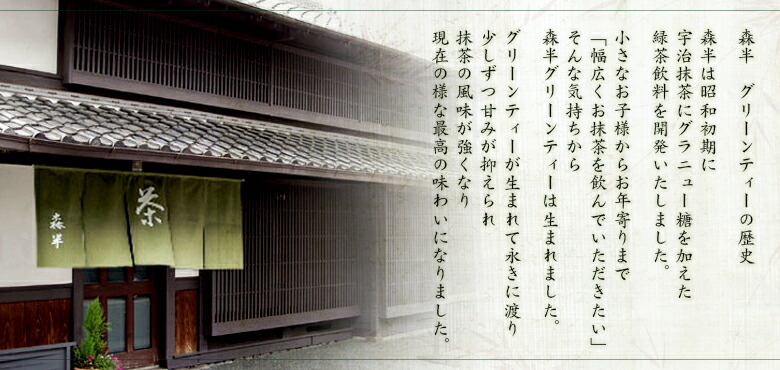 森半　グリーンティーの歴史
森半は昭和初期に
宇治抹茶にグラニュー糖を加えた
緑茶飲料を開発いたしました。
小さなお子様からお年寄りまで
「幅広くお抹茶を飲んでいただきたい」
そんな気持ちから
森半グリーンティーは生まれました。
グリーンティーが生まれて永きに渡り
少しずつ甘みが抑えられ
抹茶の風味が強くなり
現在の様な最高の味わいになりました。
茶
森半